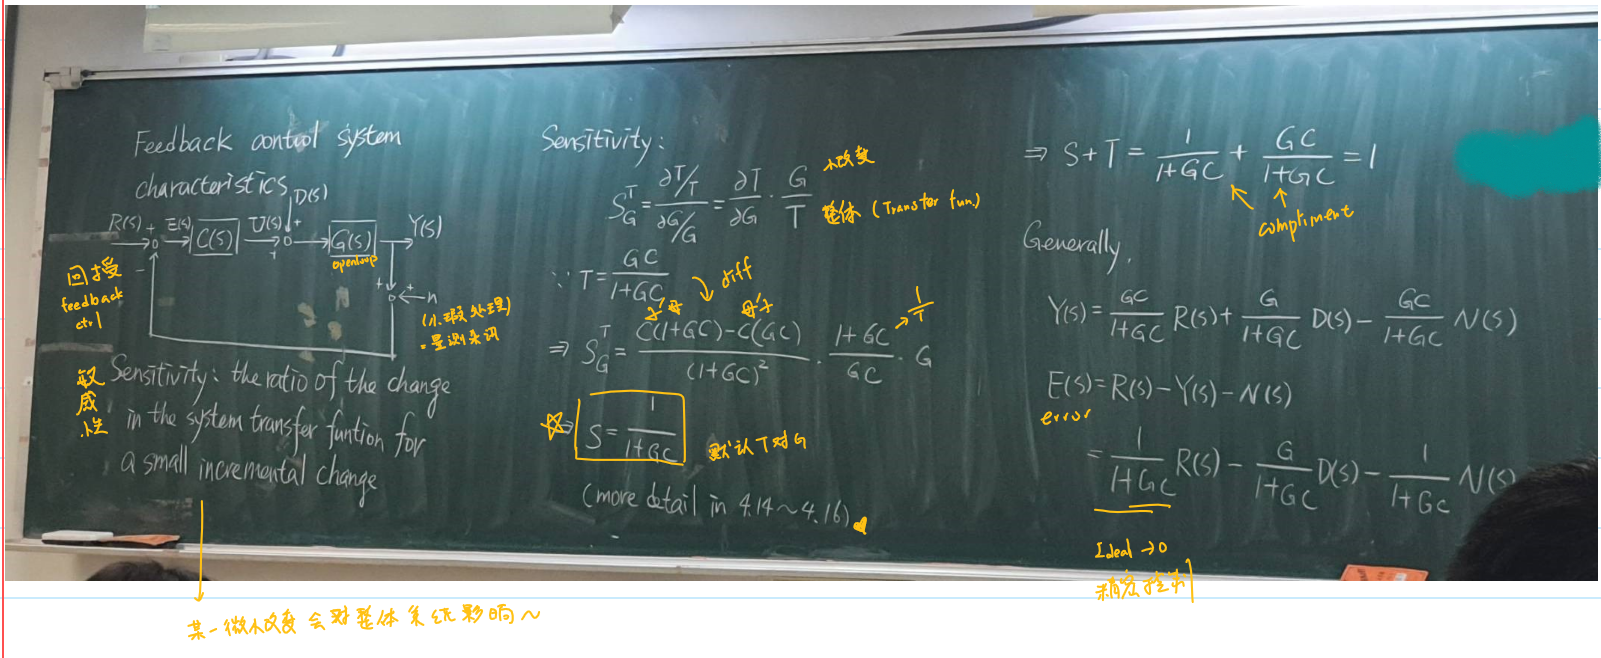 Feedback control system
characteristics
D(s)
R(s) + E(s) C(s) U(s) + G(s) Y(s)
+
-
openloop
回授
feedback
ctrl
+ + n
量測杂訊
敏
感
性
Sensitivity: the ratio of the change
in the system transfer funtion for
a small incremental change
某一微小改变会对整体系统影响~
Sensitivity:
S_G^T = (∂T/T)/(∂G/G) = ∂T/∂G · G/T
小改变
整体 (Transfer fun.)
∵ T = GC/(1+GC)
diff
子'母 母'子
1/T
⇒ S_G^T = (C(1+GC)-C(GC))/(1+GC)² · (1+GC)/GC · G
☆⇒ S = 1/(1+GC)
默认T对G
(more detail in 4.14~4.16)
⇒ S+T = 1/(1+GC) + GC/(1+GC) = 1
compliment
Generally,
Y(s) = GC/(1+GC) R(s) + G/(1+GC) D(s) - GC/(1+GC) N(s)
E(s) = R(s) - Y(s) - N(s)
error
= 1/(1+GC) R(s) - G/(1+GC) D(s) - 1/(1+GC) N(s)
Ideal → 0